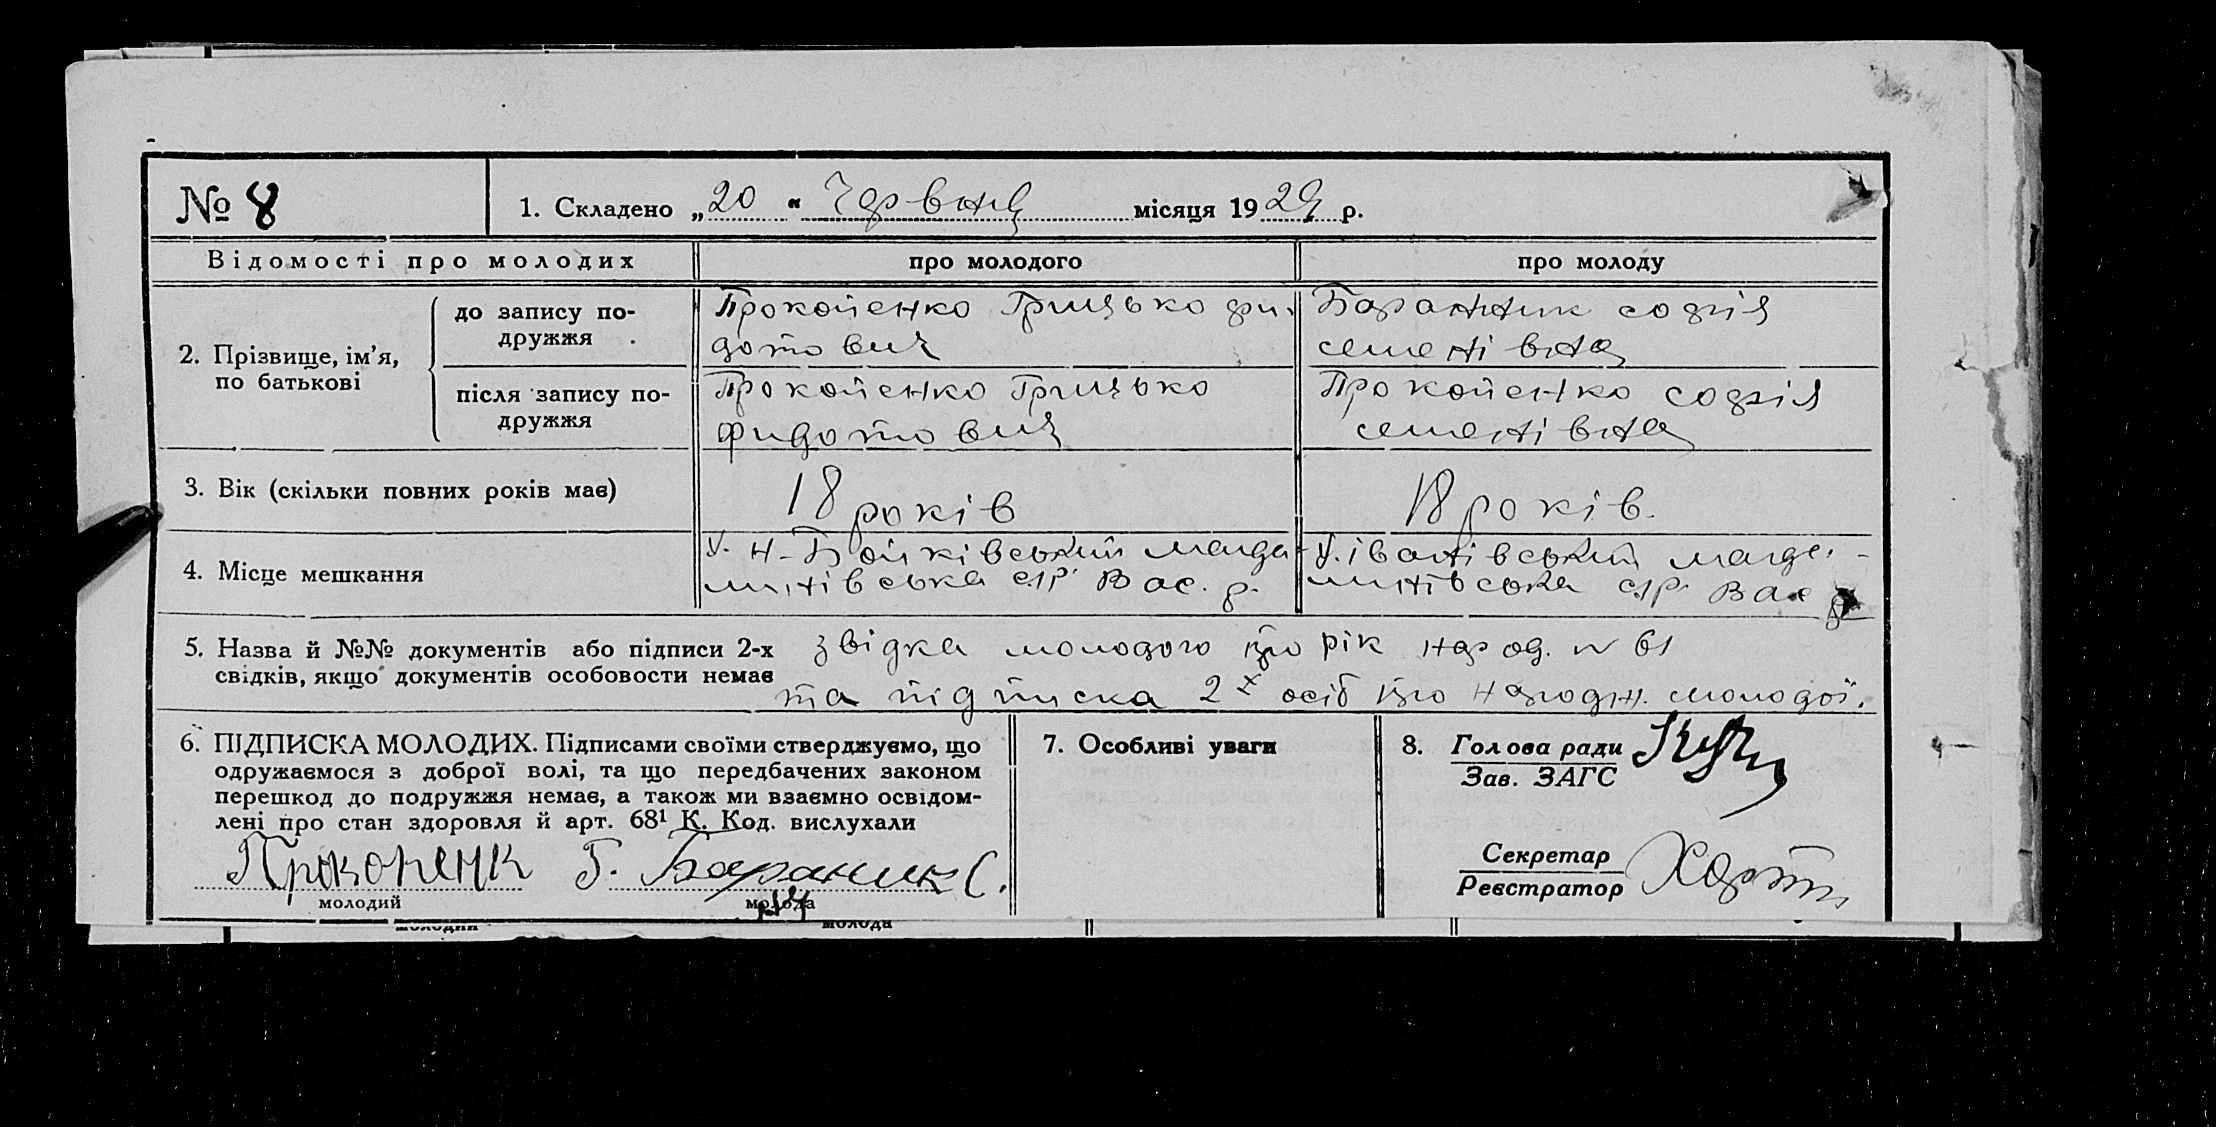 № 8
1. Складено „20“ Червня місяця 1929 р.
Відомості про молодих
про молодого
про молоду
2. Прізвище, ім’я, по батькові
до запису подружжя
Прокопенко Грицько фи-
дотович
Баранник софія
семенівна
після запису подружжя
Прокопенко Грицько
фидотович
Прокопенко софія
семенівна
3. Вік (скільки повних років має)
18 років
18 років
4. Місце мешкання
х. н-Бойківський магда-
линівська с/р. Вас. р.
х. івалівський магда-
линівська с/р. Вас р
5. Назва й №№ документів або підписи 2-х
свідків, якщо документів особовости немає
звідка молодого про рік народ. № 61
та підписка 2х осіб про народж. молодої.
6. ПІДПИСКА МОЛОДИХ. Підписами своїми стверджуємо, що
одружаємося з доброї волі, та що передбачених законом
перешкод до подружжя немає, а також ми взаємно освідом-
лені про стан здоровля й арт. 68¹ К. Код. вислухали
Прокопенк Г. Бараник С.
молодий
молода
7. Особливі уваги
8. Голова ради
Зав. ЗАГС
Секретар
Реєстратор
молодий
молода